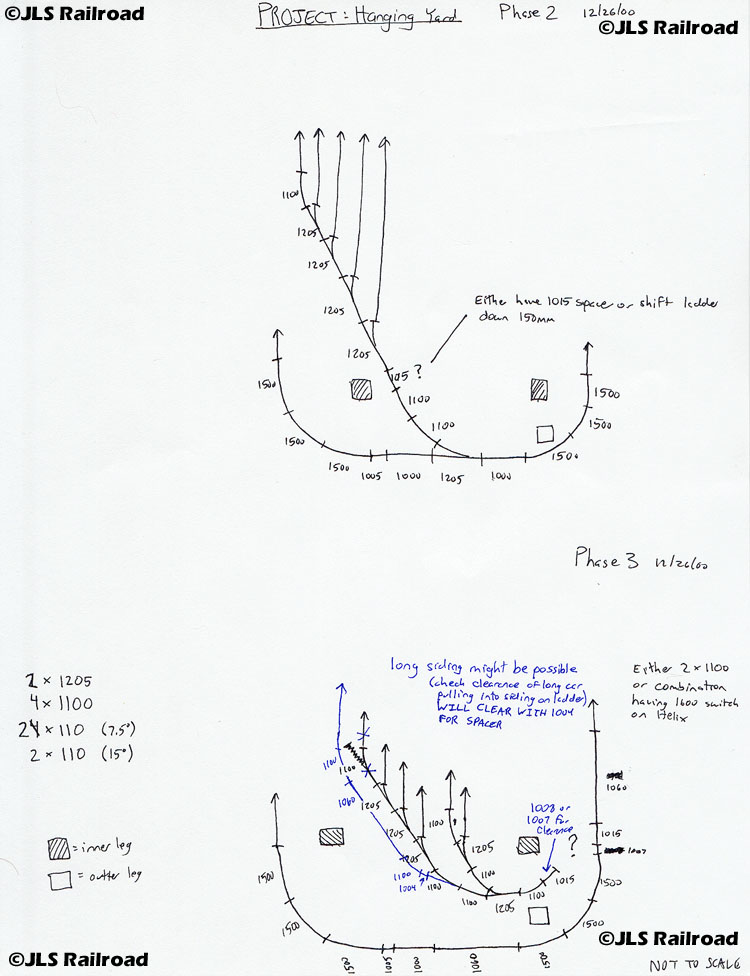 ©JLS Railroad
PROJECT: Hanging Yard Phase 2 12/26/00
©JLS Railroad
1100
1205
1205
1205
1205
Either have 1015 space or shift ladder
down 150mm
105 ?
1100
1100
1500
1500
1500
1005
1000
1205
1000
1500
1500
1500
Phase 3 12/26/00
1205
4 x 1100
x 110 (7.5°)
2 x 110 (15°)
= inner leg
= outter leg
long siding might be possible
(check clearance of long car
pulling into siding on ladder)
WILL CLEAR WITH 1004
FOR SPACER
Either 2 x 1100
or combination
having 1600 switch
on Helix
1100
1100
1060
1205
1205
1205
1100
1004
1100
1100
1100
1205
1100
1205
1100
1015
1008 or
1007 for
clearance
?
1060
1015
1007
1500
1500
1500
1500
1015
1000
NOT TO SCALE
©JLS Railroad
©JLS Railroad